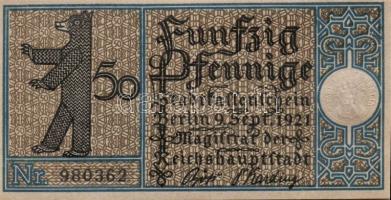 50
Funfzig
Pfennige
Stadtkassenschein
Berlin 9. Sept. 1921
Magistrat der
Reichshauptstadt
Nr. 980362